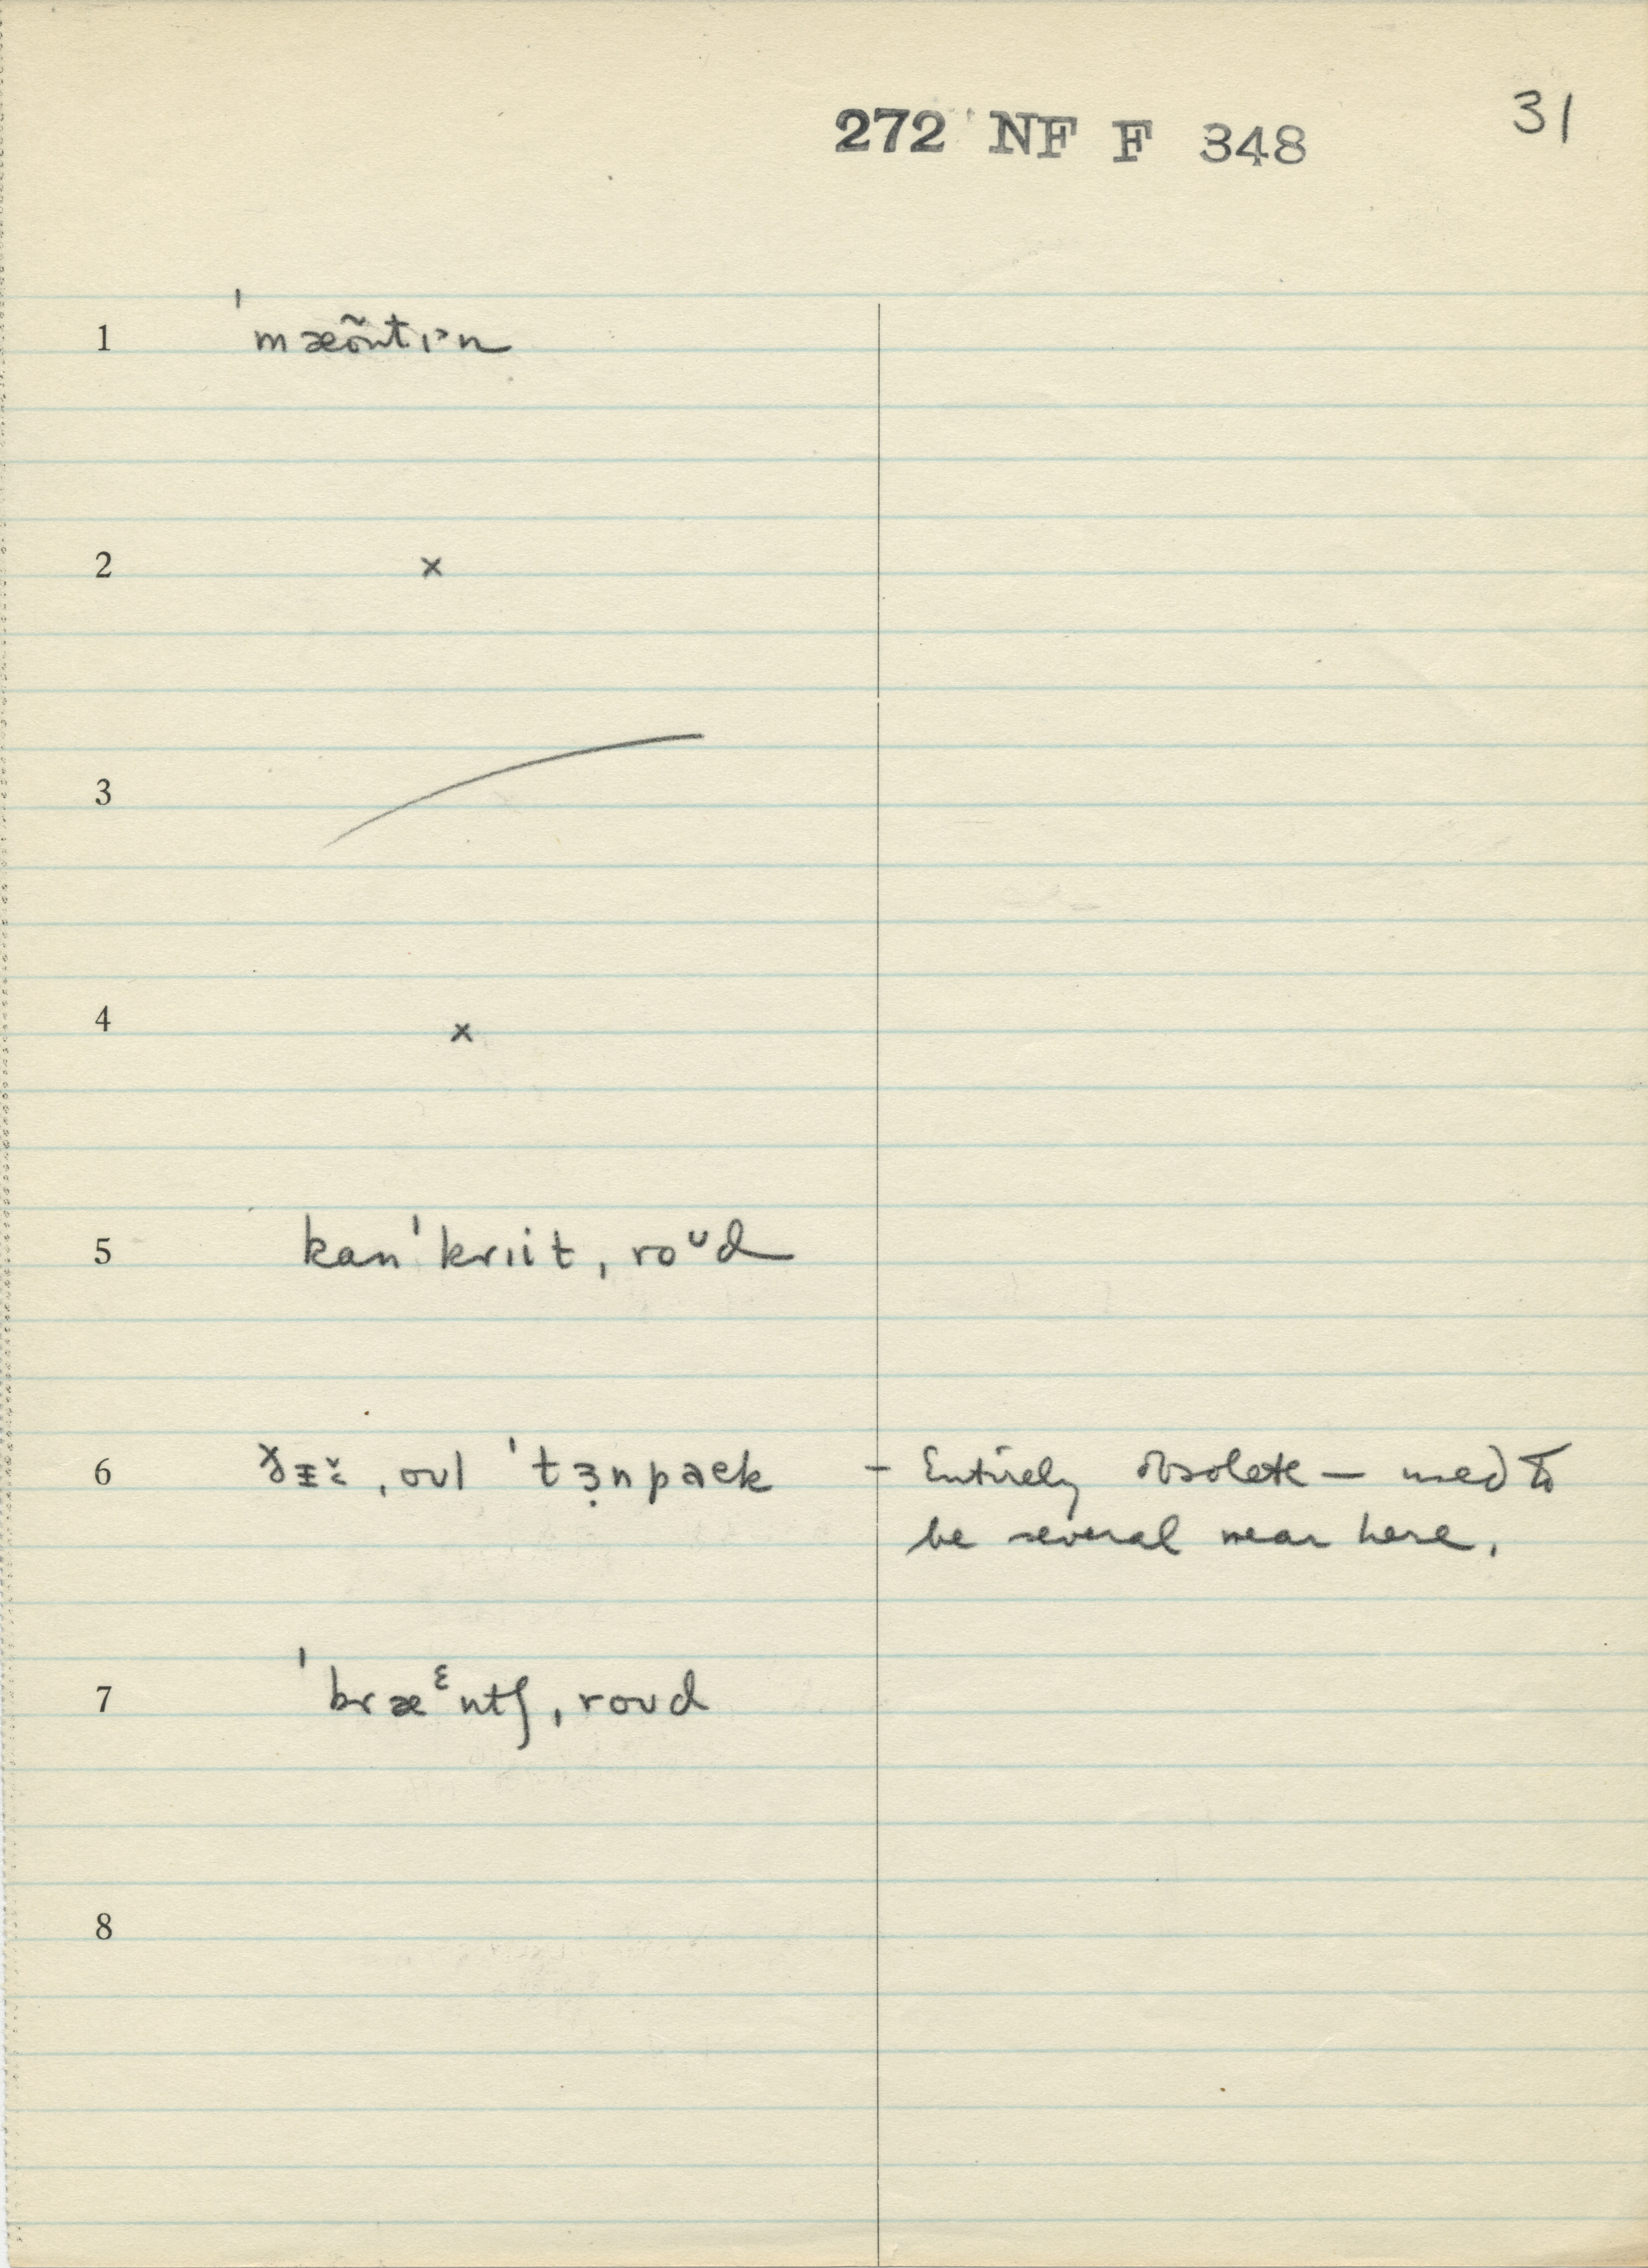 272 NF F 348
31
1 ˈmæõntɪᵊn
2 ×
3
4 ×
5 kanˈkrɪit, roᶷd
6 oʊl ˈtɜ̣npaek – Entirely obsolete — used to
be several near here.
7 ˈbræᵋntʃ, roʊd
8